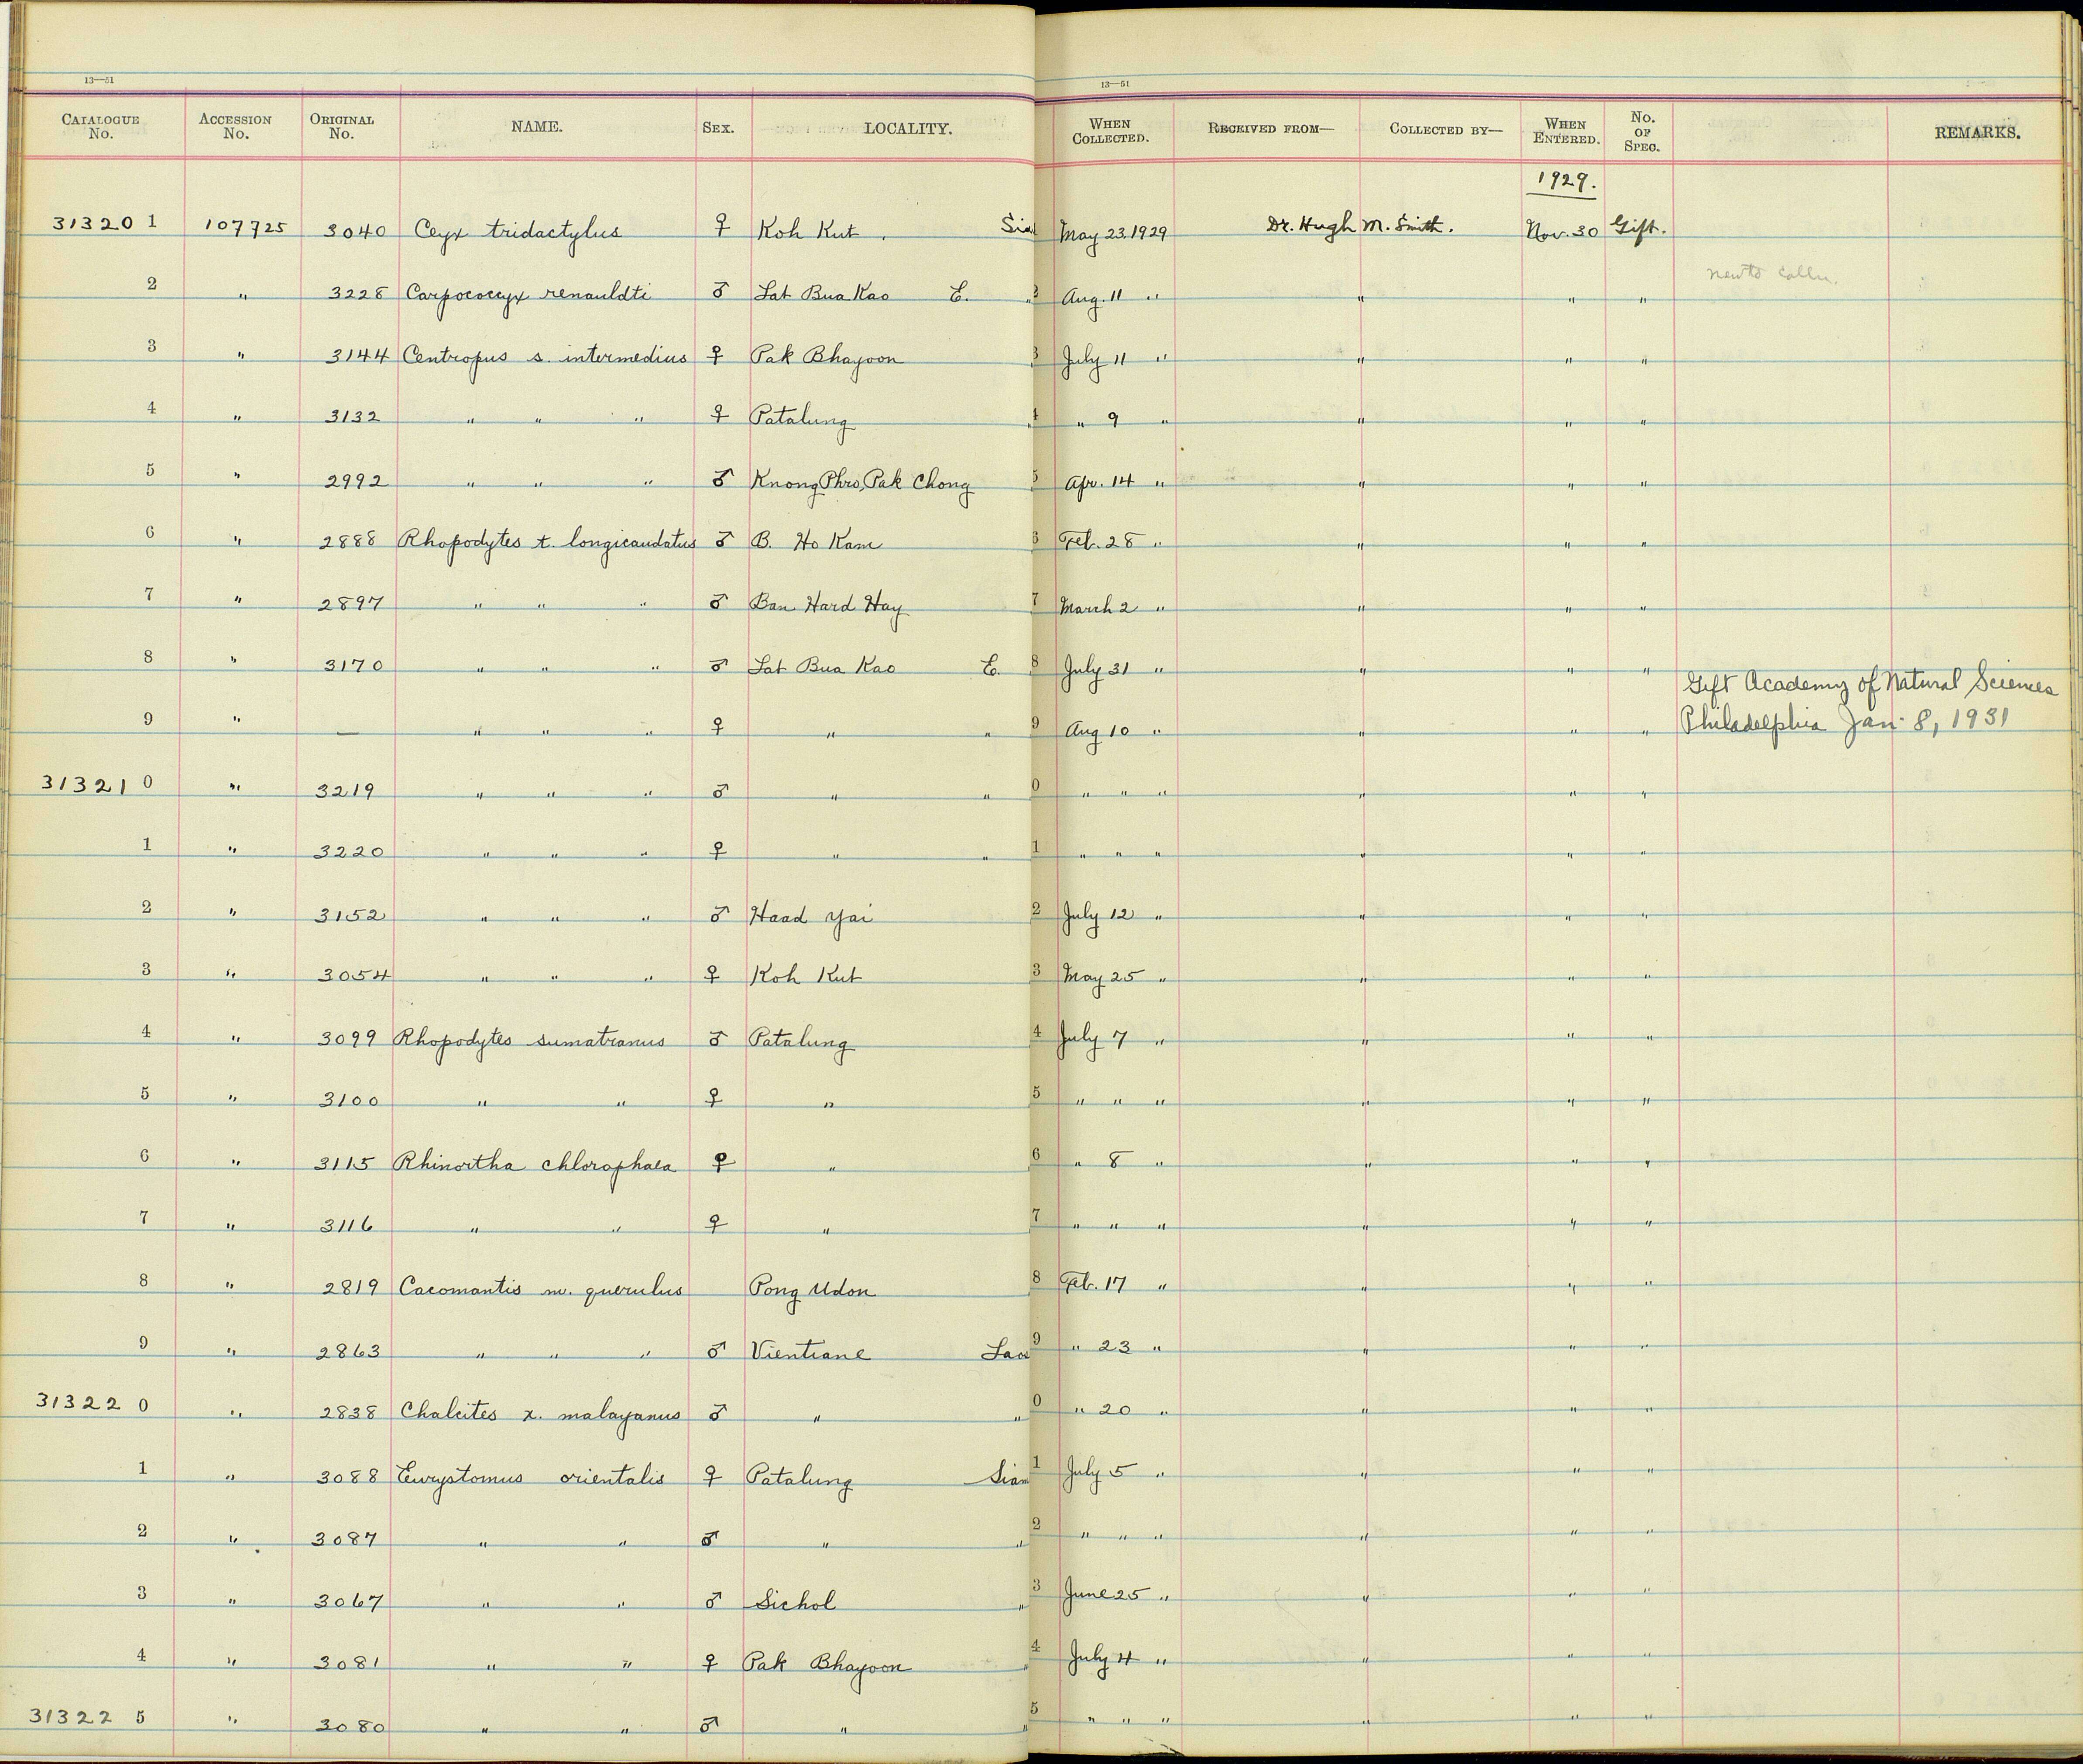 13—51 13—51
CATALOGUE No. ACCESSION No. ORIGINAL No. NAME. SEX. LOCALITY. WHEN COLLECTED. RECEIVED FROM— COLLECTED BY— WHEN ENTERED. No. OF SPEC. REMARKS.
1929.
31320 1 107725 3040 Ceyx tridactylus ♀ Koh Kut. May 23 1929 Dr. Hugh M. Smith. Nov. 30 Gift.
2 " 3228 Carpococcyx renauldti ♂ Lat Bua Kao E. " Aug. 11 " " " " new to colln.
3 " 3144 Centropus s. intermedius ♀ Pak Bhayoon 3 July 11 " " " "
4 " 3132 " " " ♀ Patalung " 4 " 9 " " " "
5 " 2992 " " " ♂ Knong Phro, Pak Chong 5 Apr. 14 " " " "
6 " 2888 Rhopodytes t. longicaudatus ♂ B. Ho Kam 6 Feb. 28 " " " "
7 " 2897 " " " ♂ Ban Hard Hay 7 March 2 " " " "
8 " 3170 " " " ♂ Lat Bua Kao E. 8 July 31 " " " "
Gift Academy of Natural Sciences
9 " — " " " ♀ " " 9 Aug 10 " " " " Philadelphia Jan. 8, 1931
31321 0 " 3219 " " " ♂ " " 0 " " " " " "
1 " 3220 " " " ♀ " " 1 " " " " " "
2 " 3152 " " " ♂ Haad Yai 2 July 12 " " " "
3 " 3054 " " " ♀ Koh Kut 3 May 25 " " " "
4 " 3099 Rhopodytes sumatranus ♂ Patalung 4 July 7 " " " "
5 " 3100 " " ♀ " 5 " " " " " "
6 " 3115 Rhinortha chlorophaea ♀ " 6 " 8 " " " "
7 " 3116 " " ♀ " 7 " " " " " "
8 " 2819 Cacomantis m. querulus Pong Udon 8 Feb. 17 " " " "
9 " 2863 " " " ♂ Vientiane Laos 9 " 23 " " " "
31322 0 " 2838 Chalcites x. malayanus ♂ " " 0 " 20 " " " "
1 " 3088 Eurystomus orientalis ♀ Patalung Siam 1 July 5 " " " "
2 " 3087 " " ♂ " " 2 " " " " " "
3 " 3067 " " ♂ Sichol " 3 June 25 " " " "
4 " 3081 " " ♀ Pak Bhayoon " 4 July 4 " " " "
31322 5 " 3080 " " ♂ " " 5 " " " " " "